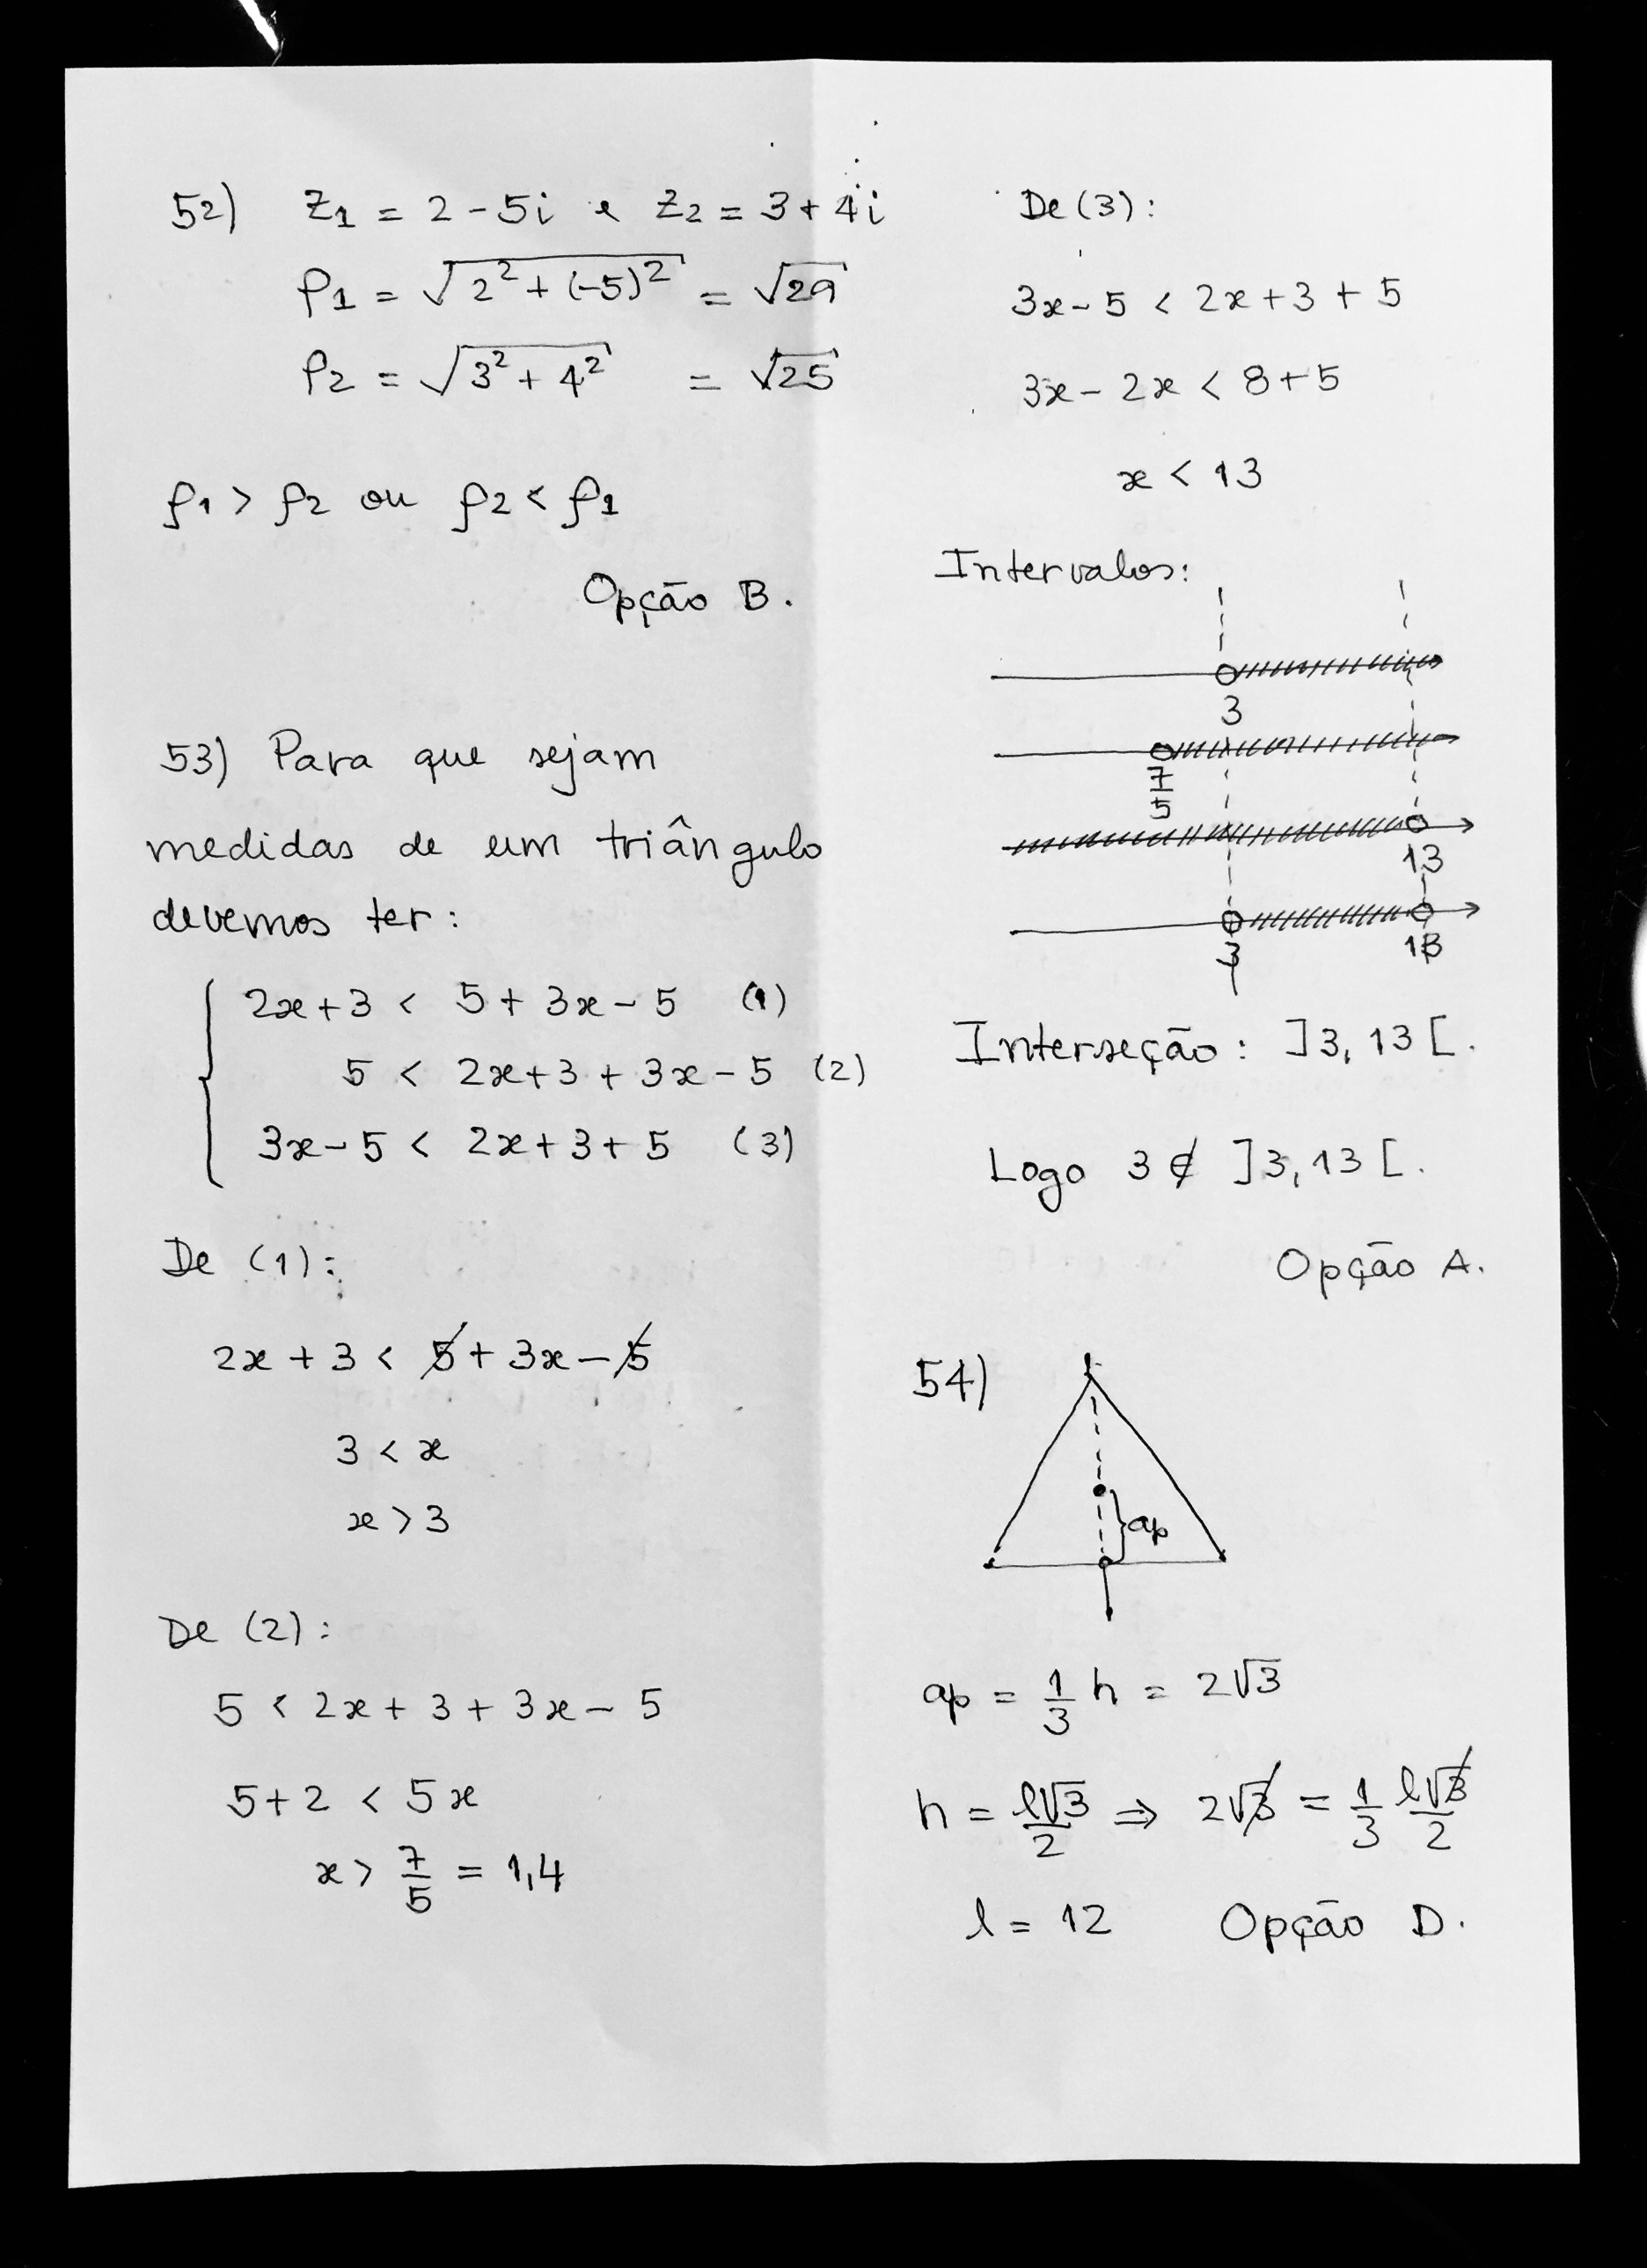 52) Z₁ = 2 - 5i e Z₂ = 3 + 4i
ρ₁ = √(2² + (-5)²) = √29
ρ₂ = √(3² + 4²) = √25
ρ₁ > ρ₂ ou ρ₂ < ρ₁
Opção B.
53) Para que sejam
medidas de um triângulo
devemos ter:
2x + 3 < 5 + 3x - 5 (1)
5 < 2x + 3 + 3x - 5 (2)
3x - 5 < 2x + 3 + 5 (3)
De (1):
2x + 3 < 5 + 3x - 5
3 < x
x > 3
De (2):
5 < 2x + 3 + 3x - 5
5 + 2 < 5x
x > 7/5 = 1,4
De (3):
3x - 5 < 2x + 3 + 5
3x - 2x < 8 + 5
x < 13
Intervalos:
3
7/5
13
3 13
Interseção: ]3, 13[.
Logo 3 ∉ ]3, 13[.
Opção A.
54)
ap
ap = 1/3 h = 2√3
h = l√3/2 ⇒ 2√3 = 1/3 l√3/2
l = 12 Opção D.